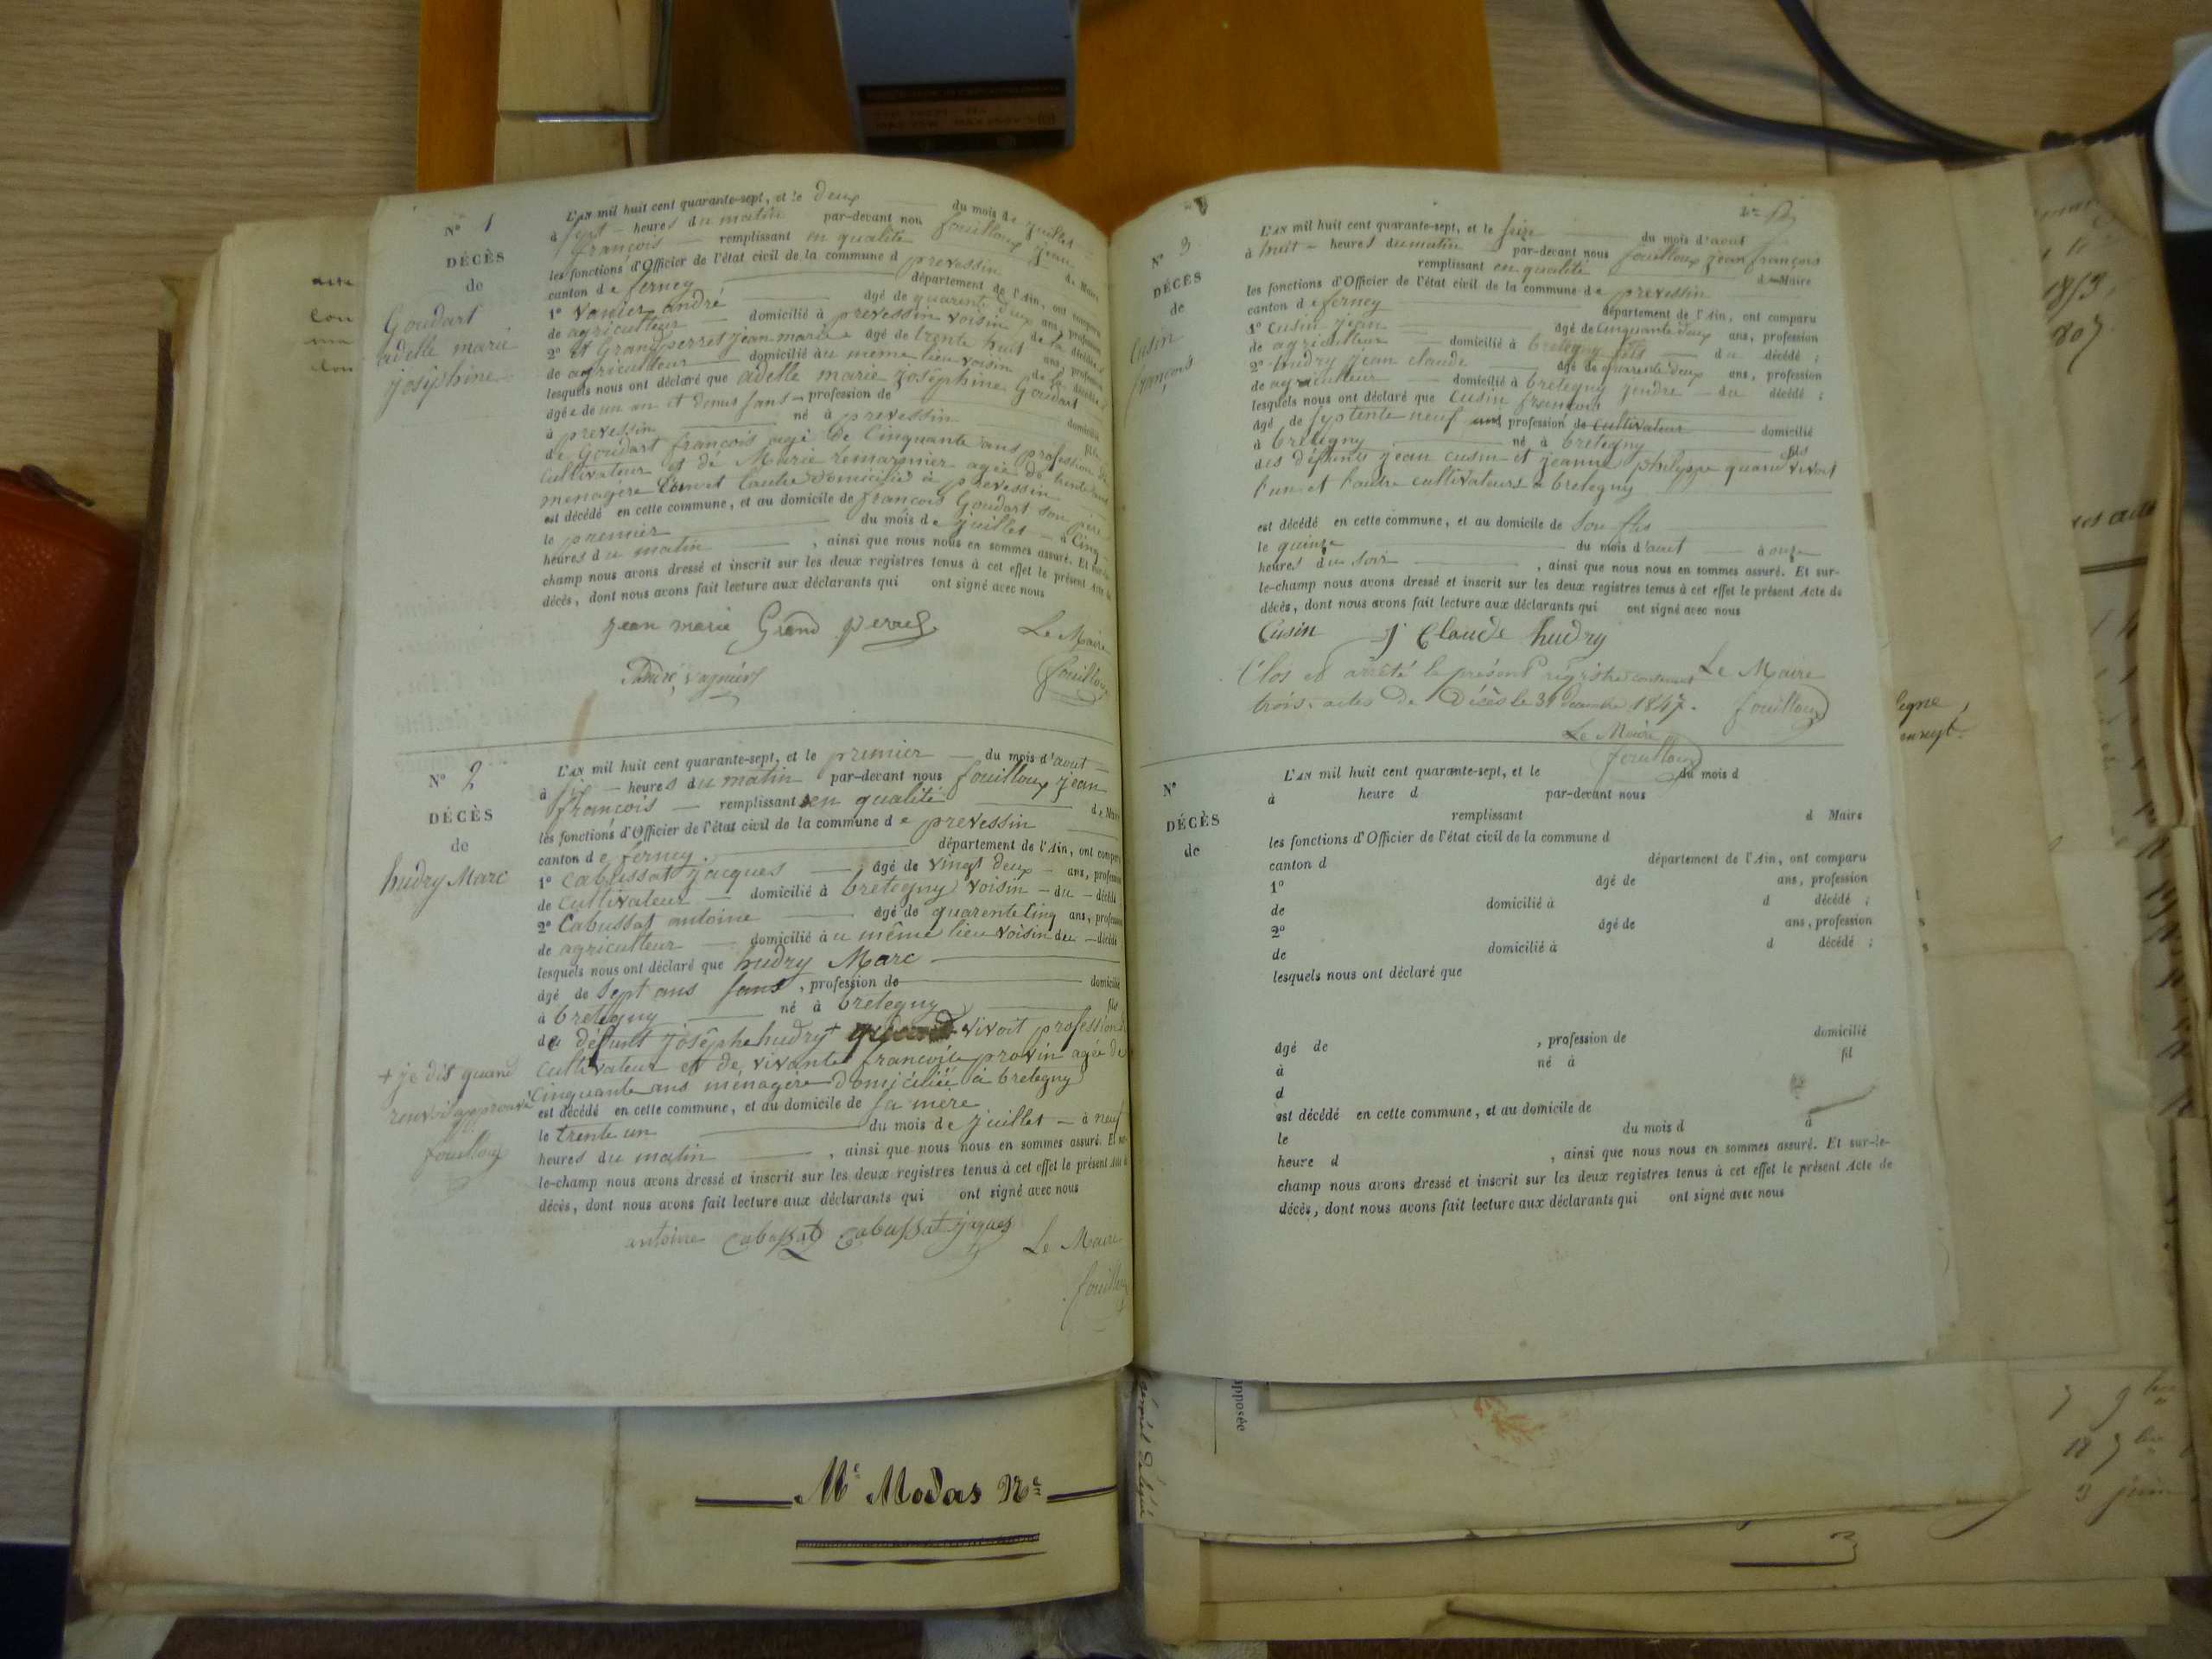 N° 1
DÉCÈS
de
Goudart
adelle marie
joséphine
L'AN mil huit cent quarante-sept, et le deux du mois de juillet
à sept heures du matin par-devant nou fouilloux jean
françois remplissant en qualité de Maire
les fonctions d'Officier de l'état civil de la commune d prevessin
canton de ferney département de l'Ain, ont comparu
1° andré âgé de quarente deux ans, profession
de agriculteur domicilié à prevessin voisin de la décédée
2° et Grandperret jean marie âgé de trente huit ans, profession
de agriculteur domicilié au même lieu voisin de la décédée
lesquels nous ont déclaré que adelle marie joséphine Goudart
âgée de un an et demis sans profession de domicilié
à prevessin né à prevessin fille
de Goudart françois agé de Cinquante ans profession de
Cultivateur et de Marie agée de trente
menagère l'un et l'autre domicilié à prevessin
est décédé en cette commune, et au domicile de françois Goudart son père
le premier du mois de juillet à Cinq
heures du matin , ainsi que nous nous en sommes assuré. Et sur-le-
champ nous avons dressé et inscrit sur les deux registres tenus à cet effet le présent Acte de
décès, dont nous avons fait lecture aux déclarants qui ont signé avec nous
jean marie Grand perret
Le Maire
fouilloux
N° 2
DÉCÈS
de
hudry Marc
L'AN mil huit cent quarante-sept, et le premier du mois d'aout
à heures du matin par-devant nous fouilloux jean
françois remplissant en qualité de Maire
les fonctions d'Officier de l'état civil de la commune de prevessin
canton de ferney. département de l'Ain, ont comparu
1° Cabussat jacques âgé de vingt deux ans, profession
de Cultivateur domicilié à bretegny voisin du décédé
2° Cabussat antoine âgé de quarente Cinq ans, profession
de agriculteur domicilié au même lieu voisin du décédé
lesquels nous ont déclaré que hudry Marc
âgé de sept ans sans , profession de domicilié
à bretegny né à bretegny fils
du défunt joséphe hudry + vivoit profession
Cultivateur et de vivante francoise provin agée de
Cinquante ans ménagère domiciliée à bretegny
+ je dis quand
renvoi approuvé
fouilloux
est décédé en cette commune, et au domicile de sa mere
le trente un du mois de juillet à neuf
heures du matin , ainsi que nous nous en sommes assuré. Et sur-
le-champ nous avons dressé et inscrit sur les deux registres tenus à cet effet le présent Acte d
décès, dont nous avons fait lecture aux déclarants qui ont signé avec nous
antoine Cabussat Cabussat jaques
Le Maire
fouilloux
Me Modas Nre
N° 3
DÉCÈS
de
Cusin
françois
L'AN mil huit cent quarante-sept, et le du mois d'aout
à huit heures du matin par-devant nous fouilloux jean françois
remplissant en qualité d Maire
les fonctions d'Officier de l'état civil de la commune de prevessin
canton de ferney département de l'Ain, ont comparu
1° Cusin jean âgé de Cinquante deux ans, profession
de agriculteur domicilié à bretegny fils du décédé ;
2° hudry jean claude âgé de quarente deux ans, profession
de agriculteur domicilié à bretegny jendre du décédé ;
lesquels nous ont déclaré que Cusin francois
âgé de septente neuf ans profession de cultivateur domicilié
à bretigny né à bretegny fils
des défunts jean cusin et jeanne philippe quand vivoit
l'un et l'autre cultivateurs à bretegny
est décédé en cette commune, et au domicile de son fils
le quinze du mois d'aout à onze
heures du soir , ainsi que nous nous en sommes assuré. Et sur-
le-champ nous avons dressé et inscrit sur les deux registres tenus à cet effet le présent Acte de
décès, dont nous avons fait lecture aux déclarants qui ont signé avec nous
Cusin J Claude hudry
Clos et arrêté le présent régistre contenant Le Maire
trois actes de Décès le 31 Decembre 1847. fouilloux
Le Maire
fouilloux
N°
DÉCÈS
de
L'AN mil huit cent quarante-sept, et le du mois d
à heure d par-devant nous
remplissant d Maire
les fonctions d'Officier de l'état civil de la commune d
canton d département de l'Ain, ont comparu
1° âgé de ans, profession
de domicilié à d décédé ;
2° âgé de ans, profession
de domicilié à d décédé ;
lesquels nous ont déclaré que
âgé de , profession de domicilié
à né à fil
d
est décédé en cette commune, et au domicile de
le du mois d à
heure d , ainsi que nous nous en sommes assuré. Et sur-le-
champ nous avons dressé et inscrit sur les deux registres tenus à cet effet le présent Acte de
décès, dont nous avons fait lecture aux déclarants qui ont signé avec nous
apposée